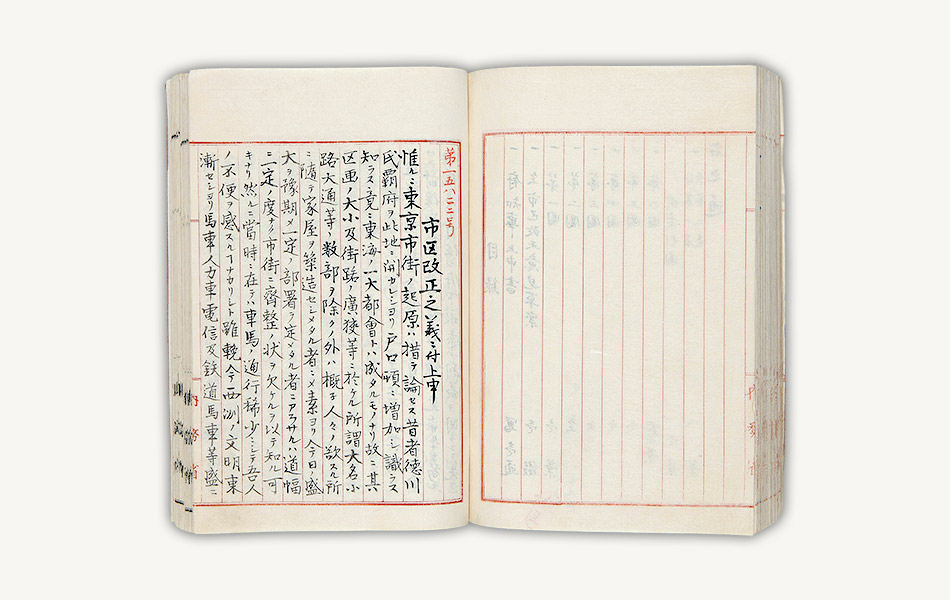 第一五八二二号
市区改正之義ニ付上申
惟ルニ東京市街ノ起原ハ措テ論セス昔者徳川
氏覇府ヲ此地ニ開カレシヨリ戸口頓ニ増加シ識ラス
知ラス竟ニ東海ノ一大都會トハ成タルモノナリ故ニ其
区画ノ大小及街路ノ廣狹等ニ於ケル所謂大名小
路大通等ノ数部ヲ除クノ外ハ概子人々ノ欲スル所
ニ随テ家屋ヲ築造セシメタル者ニメ素ヨリ今日ノ盛
大ヲ豫期メ一定ノ部署ヲ定メタル者ニアラサルハ道幅
ニ一定ノ度ナク市街ニ齊整ノ状ヲ欠ケルヲ以テ知ル可
キナリ然ルニ當時ニ在テハ車馬ノ通行稀少ニシテ吾人
ノ不便ヲ感スルヿナカリシト雖輓今西洲ノ文明東
漸セシヨリ馬車人力車電信及鉄道馬車等盛ニ